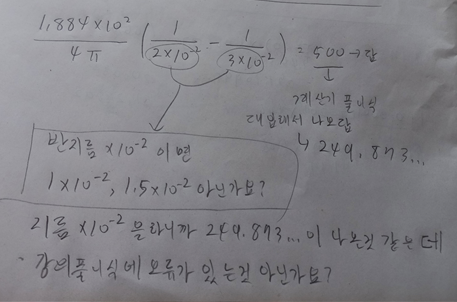 1,884×10²/4π (1/2×10⁻² - 1/3×10⁻²) = 500 → 답
계산기 풀니식
대입해서 나오답
↳ 249.873...
반지름 ×10⁻² 이면
1×10⁻², 1.5×10⁻² 아닌가요?
지름 ×10⁻² 를하니까 249.873...이 나온것 같은데
강의풀니식에 오류가 있는것 아닌가요?